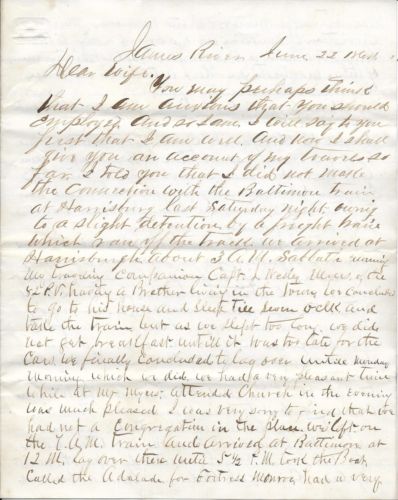 James River June 22 1864
Dear Wife.
You may perhaps think
that I am anxious that you should
employed. And so I am. I will say to you
first that I am well. And now I shall
give you an account of my travels so
far. I told you that I did not make
the Connection with the Baltimore train
at Harrisburg last Saturday night owing
to a slight detention by a freight train
which ran off the track. We arrived at
Harrisburgh about 3 A.M. Sabbath morning
My traveling Companion Capt. J Wesley Myers of the
P.V. having a Brother living in the Town we concluded
to go to his house and sleep till seven oclk and
take the train but as we slept too long we did
not get breakfast until it was too late for the
Cars we finally Concluded to lay over untill monday
Morning which we did. we had a very pleasant time
while at Mr Myers. Attended Church in the evening
was much pleased I was very sorry to find that we
had not a Congregation in the place. we left on
the A.M. train and arrived at Baltimore at
12 M. lay over there until 5½ P.M. took the Boat
Called the Adalade for Fortress Monroe, had a very